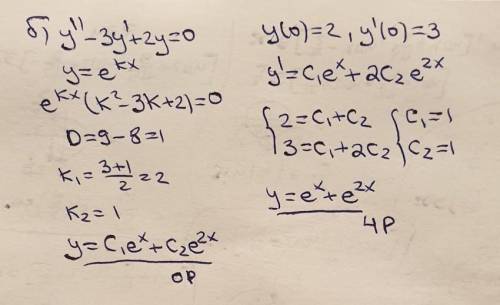 б) y'' - 3y' + 2y = 0
y = e^{kx}
e^{kx}(k² - 3k + 2) = 0
D = 9 - 8 = 1
k₁ = \frac{3+1}{2} = 2
k₂ = 1
y = C₁e^x + C₂e^{2x}
OP
y(0) = 2, y'(0) = 3
y' = C₁e^x + 2C₂e^{2x}
{ 2 = C₁ + C₂ { C₁ = 1
3 = C₁ + 2C₂ C₂ = 1
y = e^x + e^{2x}
ЧР